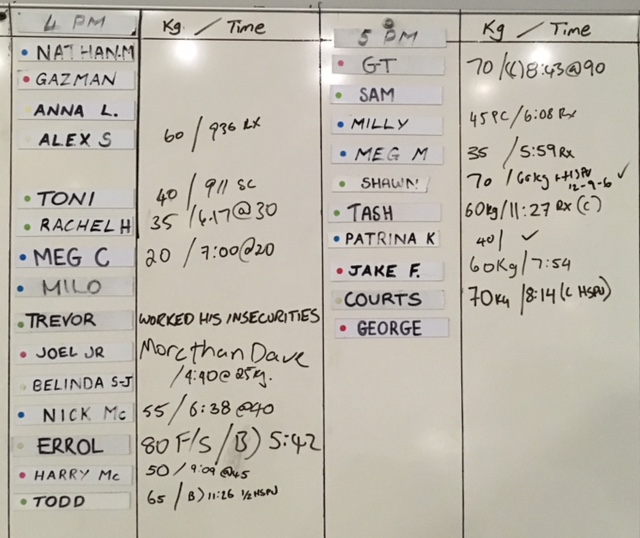 4 PM Kg / Time
NATHAN.M
GAZMAN
ANNA L.
ALEX S 60 / 936 Rx
TONI 40 / 911 SC
RACHEL H 35 / 6.17@30
MEG C 20 / 7:00@20
MILO
TREVOR WORKED HIS INSECURITIES
JOEL JR More than Dave
BELINDA S-J / 4:40@25kg.
NICK Mc 55 / 6:38@40
ERROL 80 F/S / B) 5:42
HARRY Mc 50 / 9:09@45
TODD 65 / B) 11:26 1/2 HSPU
5 PM Kg / Time
GT 70 / (C) 8:43@90
SAM
MILLY 45PC / 6:08 Rx
MEG M 35 / 5:59 Rx
SHAWN 70 / 60kg HSPU 12-9-6 ✓
TASH 60kg / 11:27 Rx (C)
PATRINA K 40 / ✓
JAKE F. 60Kg / 7:54
COURTS 70Kg / 8:14 (C HSPU)
GEORGE